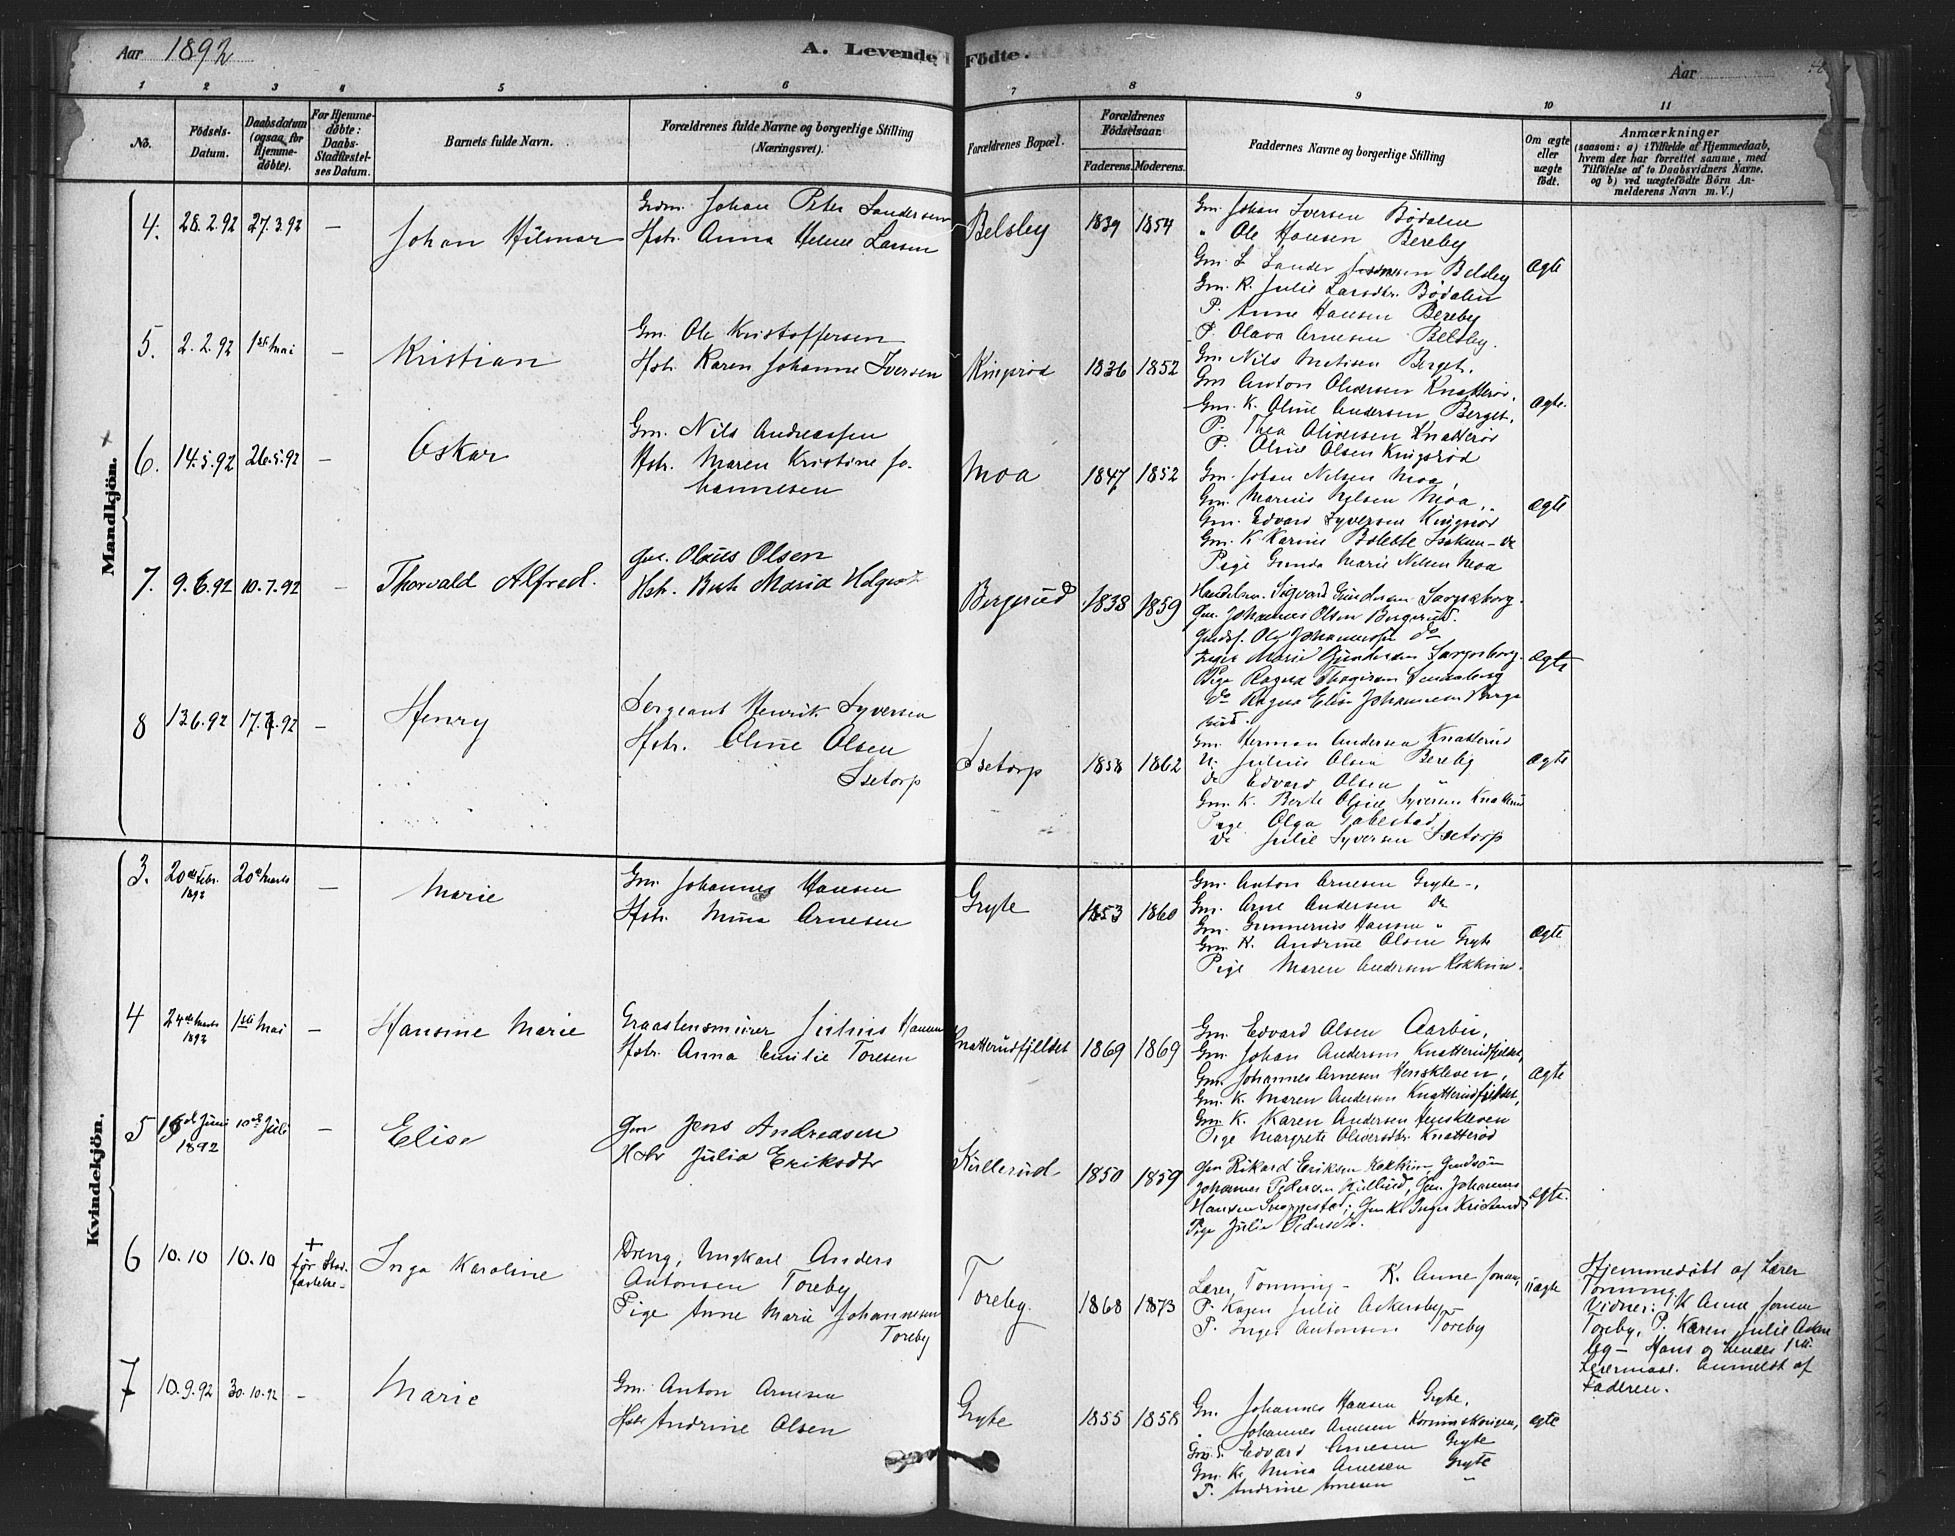 Aar 1892
A. Levende Födte.
Aar
1 2 3 4 5 6 7 8 9 10 11
No.
Födsels-Datum.
Daabsdatum (ogsaa for Hjemmedöbte).
For Hjemmedöbte: Daabs-Stadfæstelses Datum.
Barnets fulde Navn.
Forældrenes fulde Navne og borgerlige Stilling (Næringsvei).
Forældrenes Bopæl.
Forældrenes Födselsaar.
Faderens. Moderens.
Faddernes Navne og borgerlige Stilling
Om ægte eller uægte födt.
Anmærkninger
(saasom: a) i Tilfælde af Hjemmedaab, hvem der har forrettet samme, med Tilföielse af to Daabsvidners Navne. og b) ved uægtefödte Börn Anmelderens Navn m. V.)
Mandkjön.
4. 28.2.92 27.3.92 — Johan Hilmar
Grdm. Johan Peter Sandersen
Hstr. Anna Helene Larsen
Belsby 1839 1854
Gm. Johan Iversen Bödalen
" Ole Hansen Bereby
Gm. L. Sander Belsby
Gm. K. Julie Larsdtr. Bödalen
P. Anne Hansen Bereby
P. Olava Arnesen Belsby.
Ægte
5. 2.2.92 1ste Mai — Kristian
Gm. Ole Kristoffersen
Hstr. Karen Johanne Iversen
Kingsröd 1836 1852
Gm. Nils Berget.
Gm Anton Olversen Knatteröd,
Gm. K. Oline Andersen Berget,
P. Thea Oliversen Knatteröd
P. Oline Olsen Kingsröd
Ægte.
6. 14.5.92 26.5.92 — Oskar
Gm. Nils Andreassen
Hstr. Maren Kristine Johannesen
Moa 1847 1852
Gm. Johan Nilsen Moa,
Gm. Marius Nilsen Moa,
Gm. Edvard Syversen Kingsröd
Gm. K. Karine Bolette Isaksen — do
Pige Gunda Marie Nilsen Moa
Ægte
7. 9.6.92 10.7.92 — Thorvald Alfred.
Gm. Olaus Olsen
Hstr. Berte Maria Holgersd.
Bergerud 1838 1859
Handelsm. Sigvard Gundersen Sarpsborg.
Gm. Johannes Olsen Bergerud.
Gaards. Ole Johannessen do
Inger Marie Gundersen Sarpsborg.
Pige Ragna
do Ragna Elise Johannesen Bergerud.
Ægte
8 13.6.92 17.7.92 — Henry
Sergeant Henrik Syversen
Hstr. Oline Olsen
Isetorp
Isetorp 1858 1862
Gm. Herman Andersen Knatterud
U. Julius Olsen Bereby
do Edvard Olsen "
Gm. K. Berte Oline Syversen Knatterud
Pige Olga Tabestad
do Julie Syversen Isetorp
Ægte
Kvindekjön.
3. 20de Febr. 1892 20de Marts — Marie
Gm. Johannes Hansen
Hstr. Mina Arnesen
Gryte 1853 1860
Gm. Anton Arnesen Gryte
Gm. Arne Andersen do
Gm. Gunnerius Hansen "
Gm. K. Andrine Olsen Gryte
Pige Maren Andersen Kokkin.
Ægte
4 24de Marts 1892 1ste Mai — Hansine Marie
Graastensmurer Julius Hansen
Hstr. Anna Emilie Toresen
Knatterudfjeldet 1869 1869
Gm. Edvard Olsen Aarbu,
Gm. Johan Andersen Knatterudfjeldet,
Gm. Johannes Arnesen Henskleven,
Gm. K. Maren Andersen Knatterudfjeldet,
Gm. K. Karen Andersen Henskleven
Pige Margrete Oliversdtr. Knatteröd
Ægte
5 15de Juni 1892 10de Juli — Elise
Gm Jens Andreasen
Hstr Julia Eriksdtr
Kullerud 1850 1859
Gm Rikard Eriksen Kokkin, Gaardsön
Johannes Pedersen Kullerud, Gm. Johannes
Hansen Snoppestad; Gm K. Inger
Pige Julia Pedersdtr.
Ægte.
6 10.10 10.10 + før Stadfæstelse — Inga Karoline
Dreng, Ungkarl Anders
Antonsen Toreby
Pige Anne Marie Johannesen
Toreby
Toreby. 1868 1873
Lærer Tomming — K. Anne Jonsen,
P. Karen Julie Askersby
P. Inger Antonsen Toreby
Uægte
Hjemmedöbt af Lærer
Tomming.
Vidner: K Anne Jonsen
Toreby, P. Karen Julie Askersby — Hans og hendes 1ste
Leiermaal. Anmeldt af
Faderen.
7 10.9.92 30.10.92 — Marie
Gm. Anton Arnesen
Hstr Andrine Olsen
Gryte 1855 1858
Gm. Johannes Hansen Gryte,
" Johannes Arnesen
Gm. S. Edvard Arnesen Gryte
Gm. K. Mina Arnesen Gryte
P. Andrine Arnesen "
Ægte